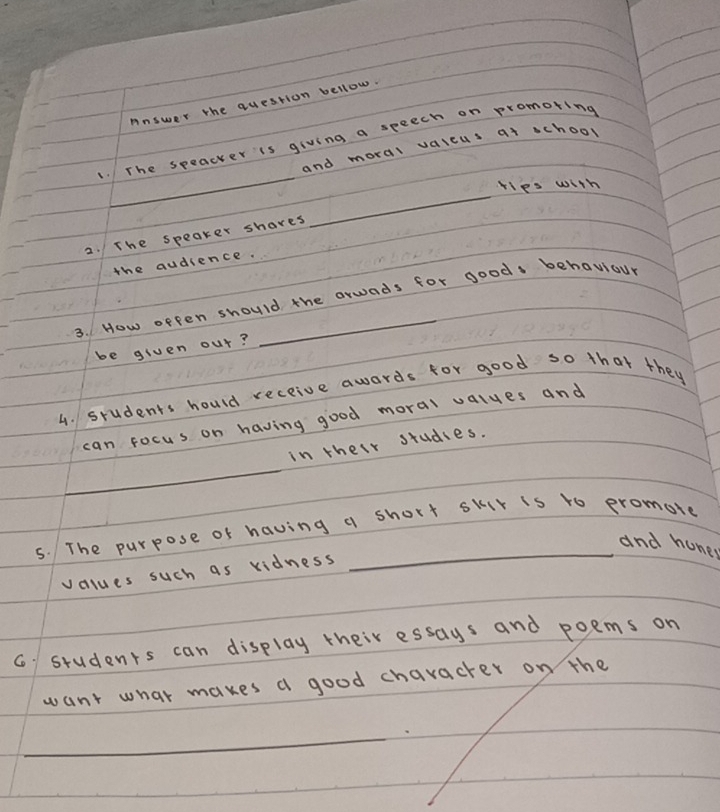 Answer the question bellow.
1. The speacker is giving a speech on promoting
____________ and moral valeus at school
2. The speaker shares ____________ tips with
the audience.
3. How offen should the arwads for goods behaviour
be given out? ____________
4. Students hould receive awards for good so that they
can focus on having good moral values and
____________ in their studies.
5. The purpose of having a short skit is to promote
values such as kidness ____________ and hones
6. Students can display their essays and poems on
want what makes a good character on the
____________.